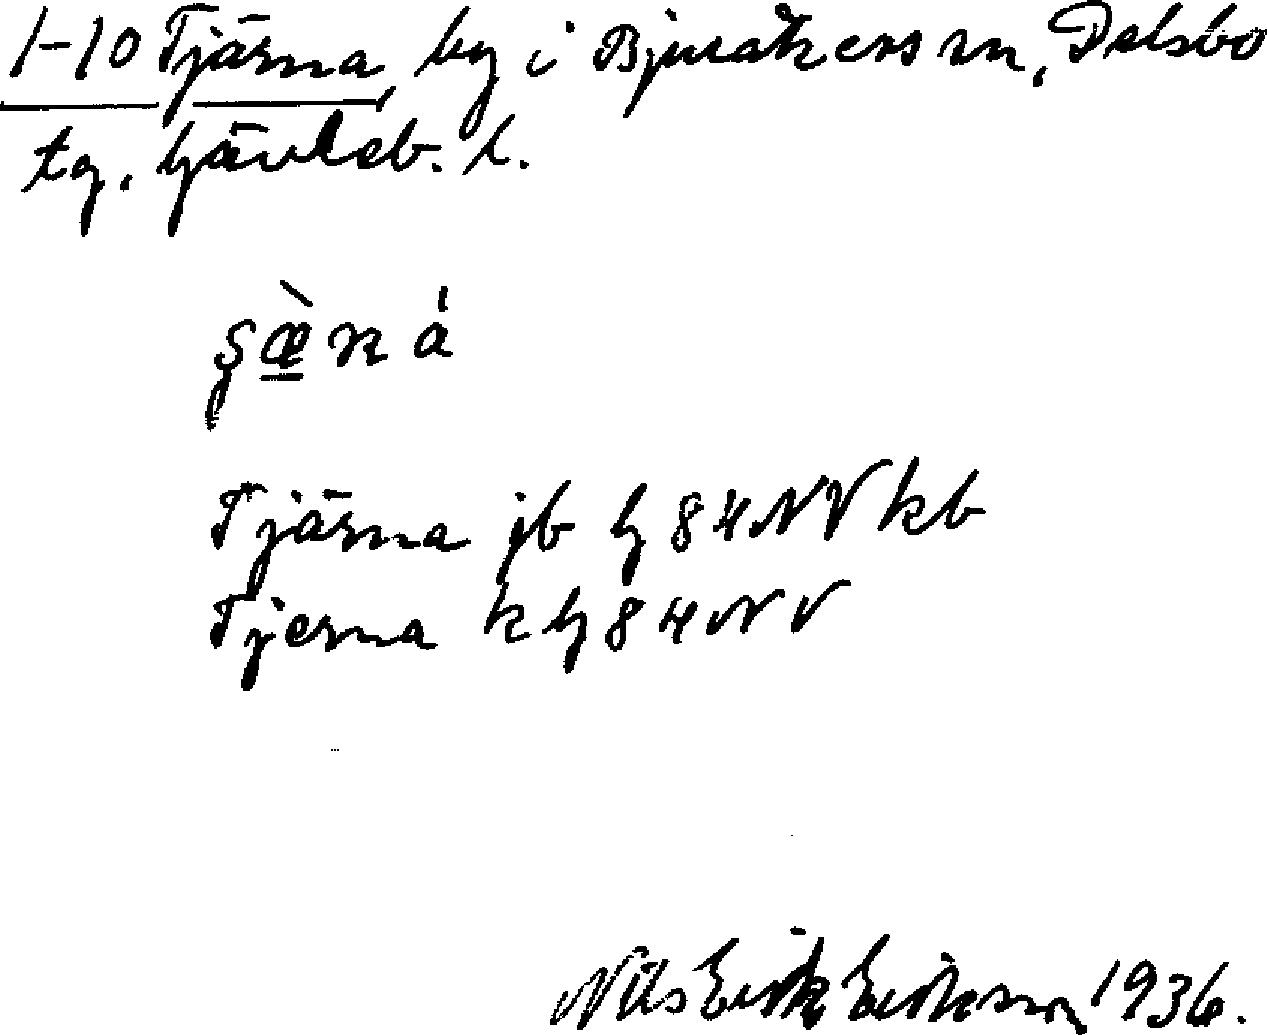 1-10 Tjärna, by i Bjuråkers sn, Delsbo
tg. Gävleb. l.
ʂæ̀ná
Tjärna jb G 84 NV kb
Tjerna k G 84 NV
Nils Erik Eriksson 1936.